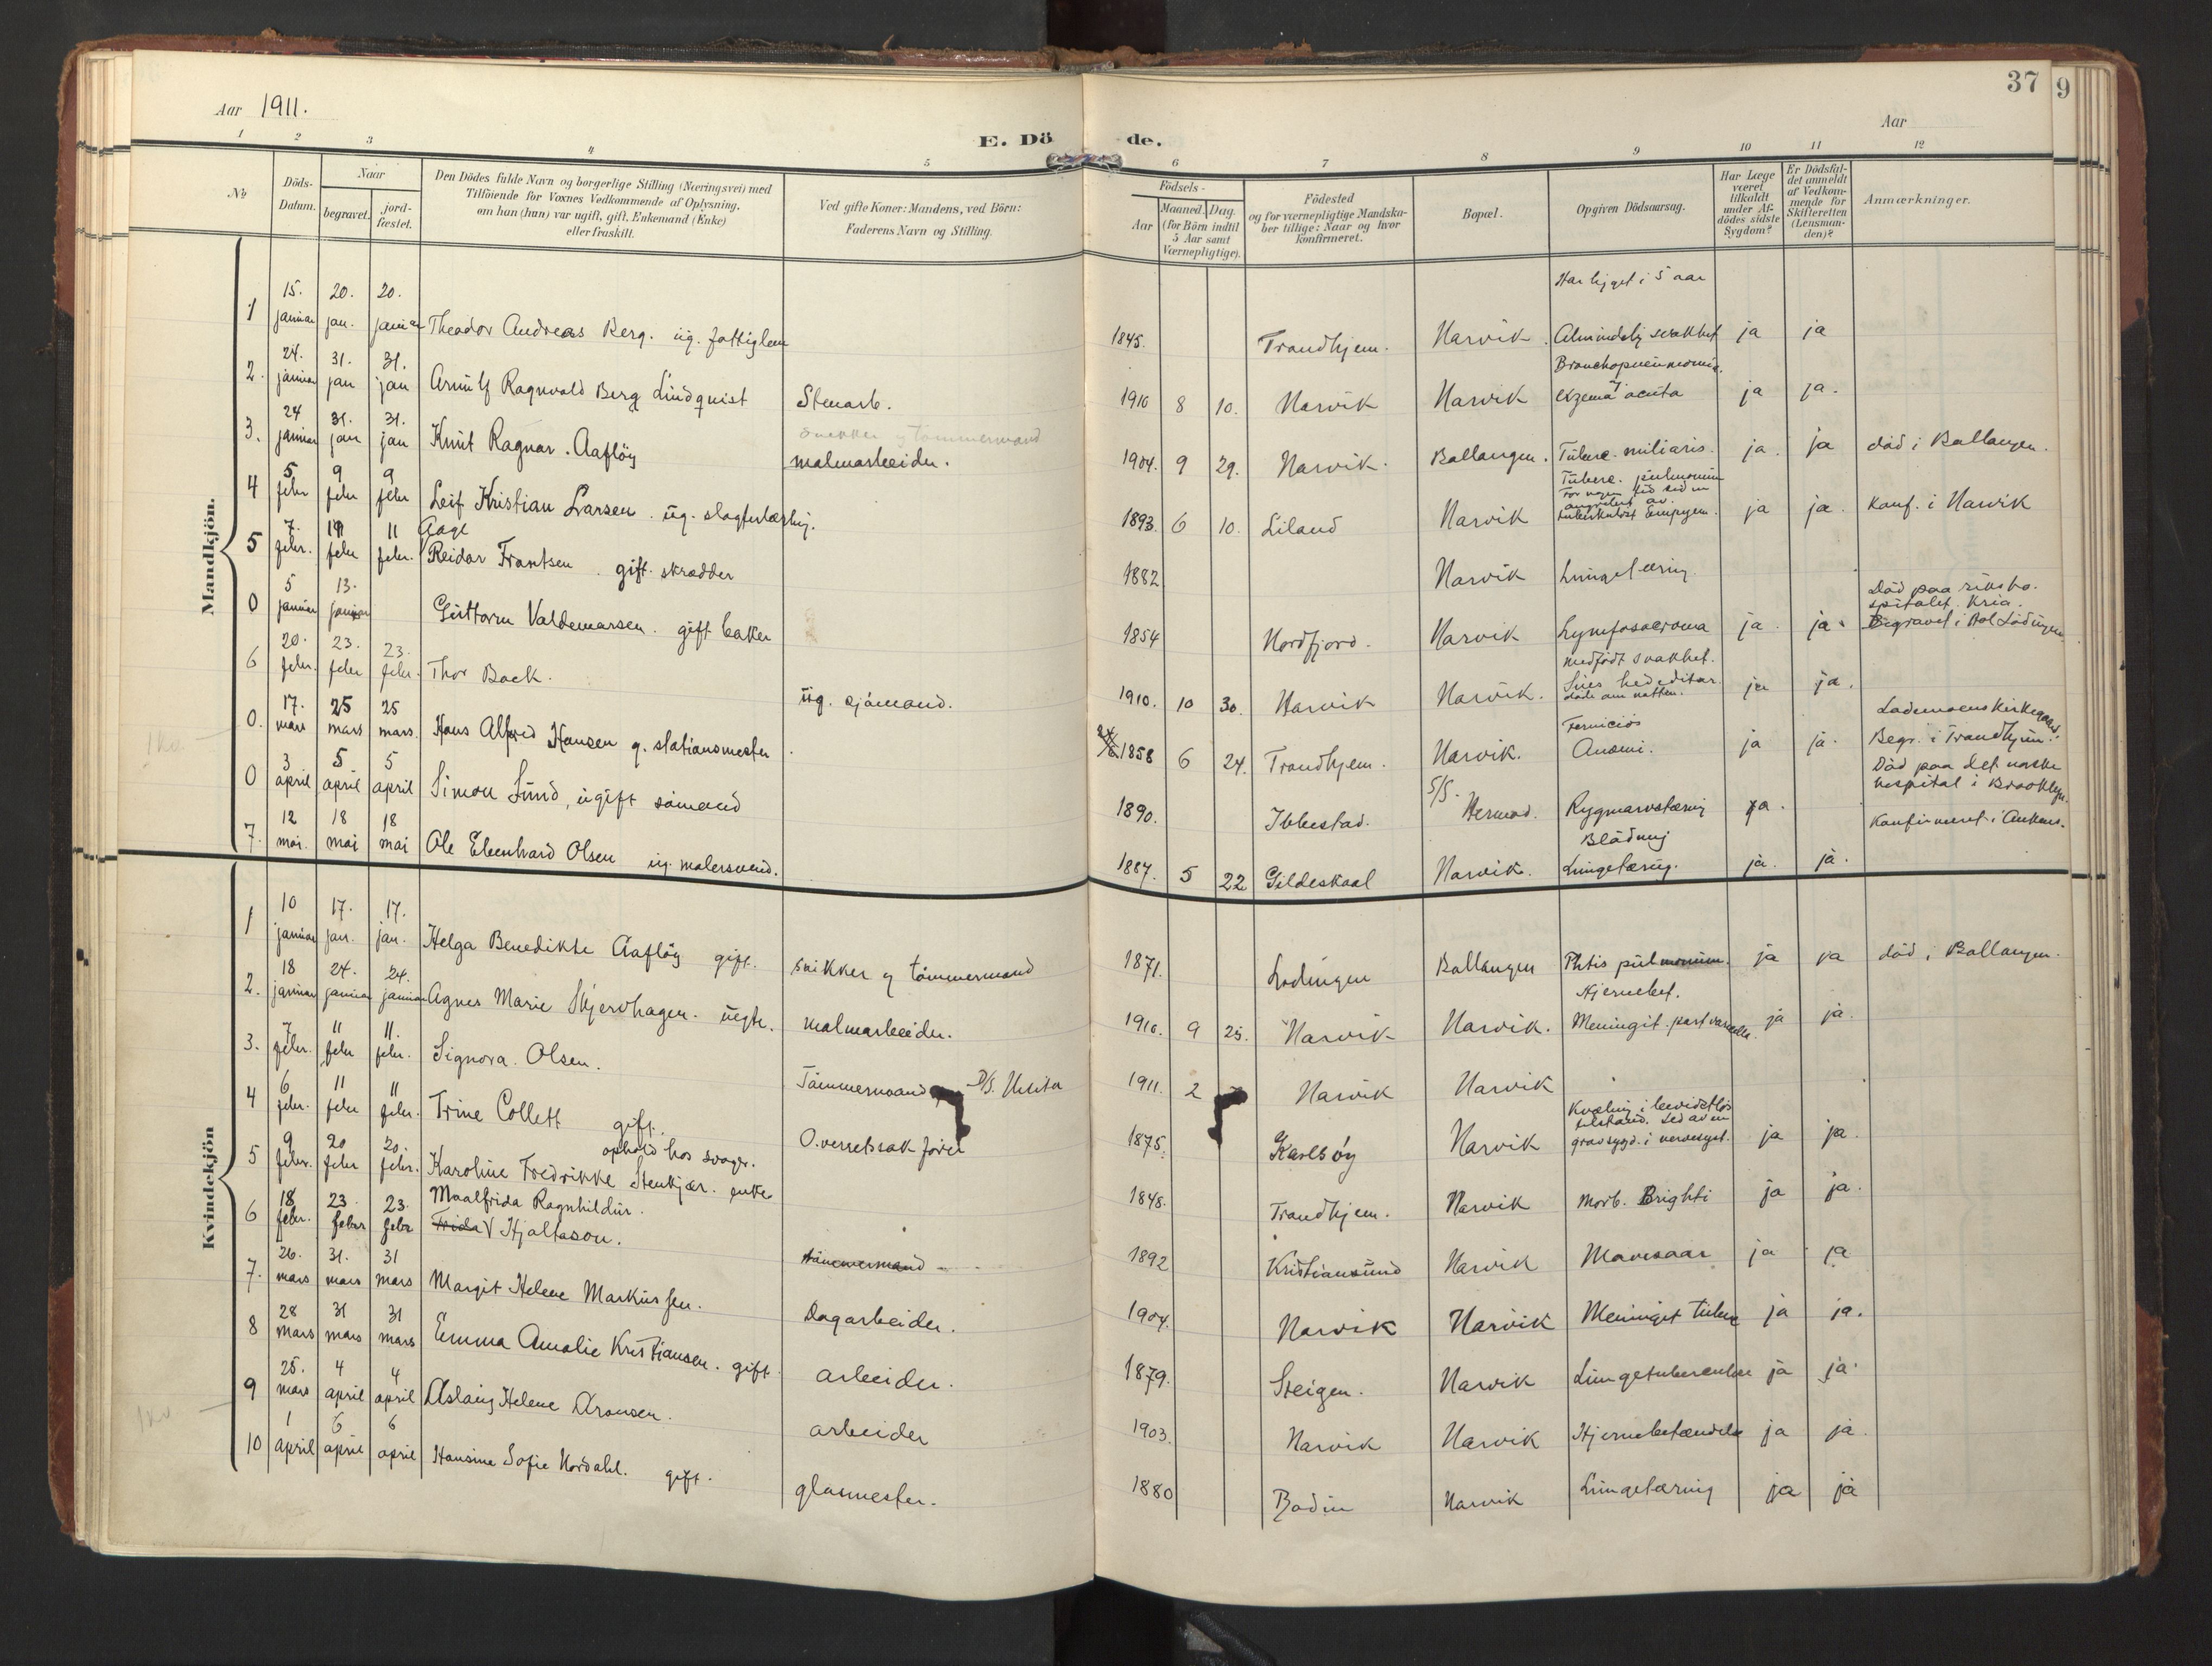 37
9
Aar 1911.
E. Dö de.
Aar
1 2 3 4 5 6 7 8 9 10 11 12
No
Döds-Datum.
Naar
begravet.
jord-fæstet.
Den Dödes fulde Navn og borgerlige Stilling (Næringsvei) med
Tilföiende for Voxnes Vedkommende af Oplysning,
om han (hun) var ugift, gift, Enkemand (Enke)
eller fraskilt.
Ved gifte Koner: Mandens, ved Börn:
Faderens Navn og Stilling.
Födsels-
Aar
Maaned. Dag.
(for Börn indtil
5 Aar samt
Værnepligtige).
Födested
og for værnepligtige Mandska-
ber tillige: Naar og hvor
konfirmeret.
Bopæl.
Opgiven Dödsaarsag.
Har Læge
været
tilkaldt
under Af-
dödes sidste
Sygdom?
Er Dödsfal-
det anmeldt
af Vedkom-
mende for
Skifteretten
(Lensman-
den)?
Anmærkninger.
Mandkjön.
Har ligget i 5 aar
1 15. januar 20. jan. 20. januar Theodor Andreas Berg. ug. fattiglem 1845. Trondhjem. Narvik. Almindelig svakhet ja ja
Bronchopneumoni
2. 24. januar 31. jan 31. jan Arnulf Ragnvald Berg Lindquist Stenarb. 1910 8 10. Narvik Narvik og exzema acuta ja ja.
snekker og tömmermand
3. 24 januar 31. jan 31. jan Knut Ragnar. Aaflöy malmarbeider. 1904. 9 29. Narvik. Ballangen. Tuberc. miliaris. ja. ja död i Ballangen.
Tuberc. pulmonum
4 5 febr 9 febr 9 febr Leif Kristian Larsen. ug. slagterlærling. 1893. 6 10. Liland Narvik For nogen tid siden angrebet av tuberkuløst Empyem. ja ja. Konf. i Narvik
Aage
5 7. febr. 11 febr 11 febr. Reidar Frantsen. gift. skrædder 1882 Narvik Lungetæring.
0 5 januar 13. januar Guttorm Valdemarsen. gift baker 1854 Nordfjord. Narvik Lymfosacroma ja. ja. Död paa riksho-
spitalet. Kria.
Begravet i Hol Lödingen
medfödt svakhet.
6 20. febr. 23. febr 23. febr. Thor Bock. ug. sjömand. 1910. 10 30. Narvik Narvik. Lues hereditar. döde om natten. ja ja.
0. 17. mars 25 mars 25 mars. Hans Alfred Hansen g. stationsmester 1858 6 24. Trondhjem. Narvik. Perniciös Anæmi. ja ja. Lademoens Kirkegaard.
Begr. i Trondhjem.
0 3 april 5 april 5 april Simon Lund, ugift sömand 1890. Ibbestad. S/S. Hermod. Rygmarvstæring ja. Död paa det norske
hospital i Brooklyn.
7. 12 mai. 18 mai 18 mai Ole Ebenhard Olsen ug. malersvend. 1887. 5 22 Gildeskaal Narvik. Blödning Lungetæring. ja. ja. Konfirmeret i Ankenes.
Kvindekjön
1 10 januar 17. jan. 17. jan. Helga Benedikte Aaflöy gift. snikker og tömmermand 1871. Lodingen Ballangen Phtis pulmonum. ja ja död i Ballangen.
Hjernebet.
2. 18 januar 24. januar 24. januar Agnes Marie Skjervhagen. uegte. malmarbeider. 1910. 9 25. Narvik Narvik. Meningit. post varicella. ja ja.
3. 7 febr. 11 febr 11. febr. Signora. Olsen. Tömmermand D/S. 1911. 2 Narvik Narvik
4 6 febr. 11 febr 11 febr. Trine Collett gift. O.verretssakförer 1875. Karlsöy Narvik Kvæling i bevidstlös
tilstand. Led av en
grov sygd. i nervesyst. ja ja.
ophold hos svoger.
5 9 febr. 20 febr 20. febr. Karoline Fredrikke Stenkjær. enke 1848. Trondhjem. Narvik Morb. Brighti ja ja.
Maalfrida Ragnhildur.
6 18 febr. 23 febr 23. febr Frida V Hjaltason. tömmermand 1892 Kristiansund Narvik Mavesaar ja ja
7. 26. mars 31. mars 31 mars Margit Helene Markussen. Dagarbeider. 1904. Narvik Narvik Meningit tuberc ja ja.
8 28 mars 31 mars 31 mars Emma Amalie Kristiansen. gift arbeider. 1879. Steigen. Narvik Lungetuberculose ja ja.
9 25. mars 4 april 4 april Aslaug Helene Aronsen. arbeider 1903. Narvik Narvik Hjernebetændelse ja ja.
10 1 april 6 april 6 april Hansine Sofie Nordahl. gift. glasmester. 1880 Bodin Narvik Lungetæring ja ja